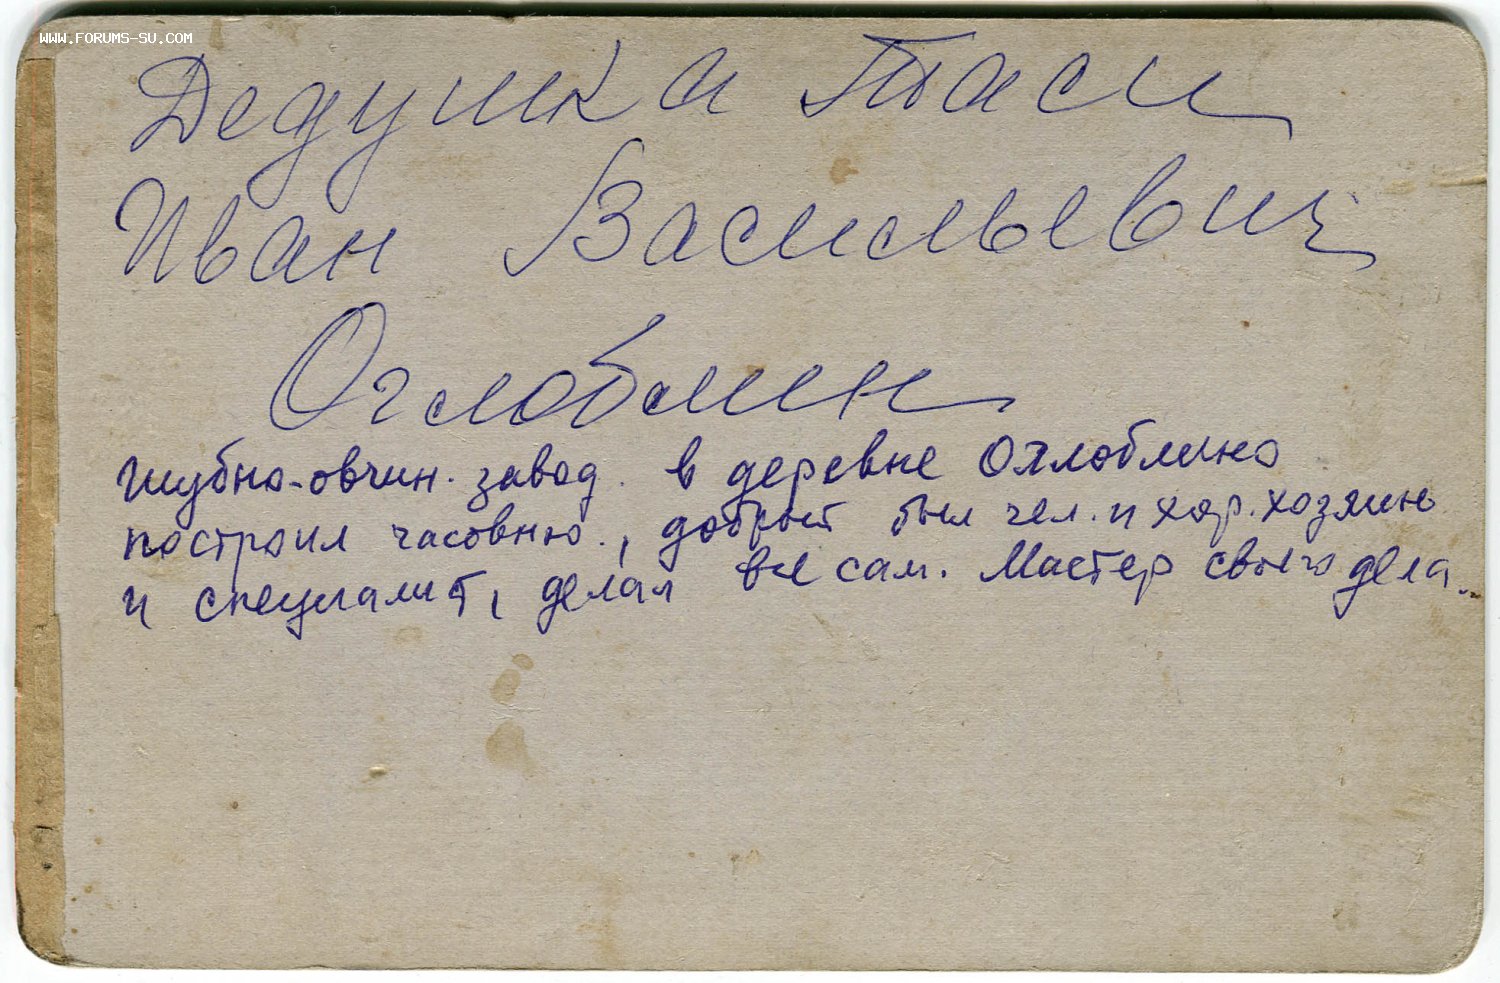 WWW.FORUMS-SU.COM
Дедушка Таси
Иван Васильевич
Оглоблин
шубно-овчин. завод. в деревне Охлоблино
построил часовню., добрый был чел. и хор. хозяин
и специалист, делал все сам. Мастер своего дела..